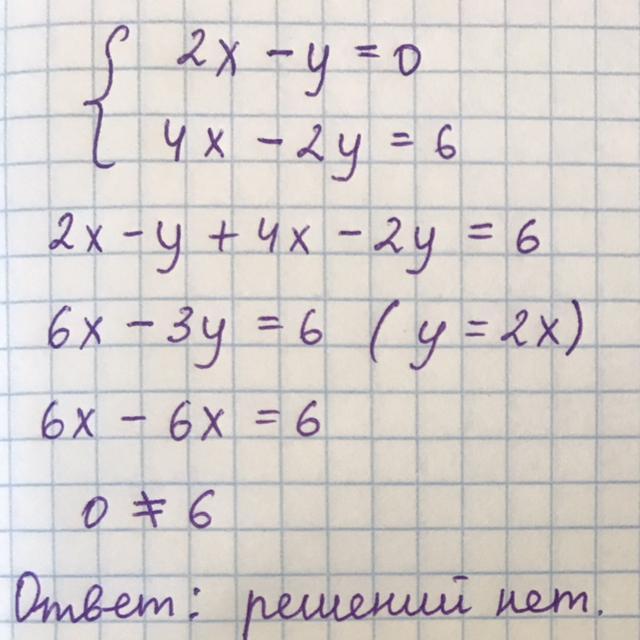 { 2x - y = 0
4x - 2y = 6
2x - y + 4x - 2y = 6
6x - 3y = 6 (y = 2x)
6x - 6x = 6
0 ≠ 6
Ответ: решений нет.